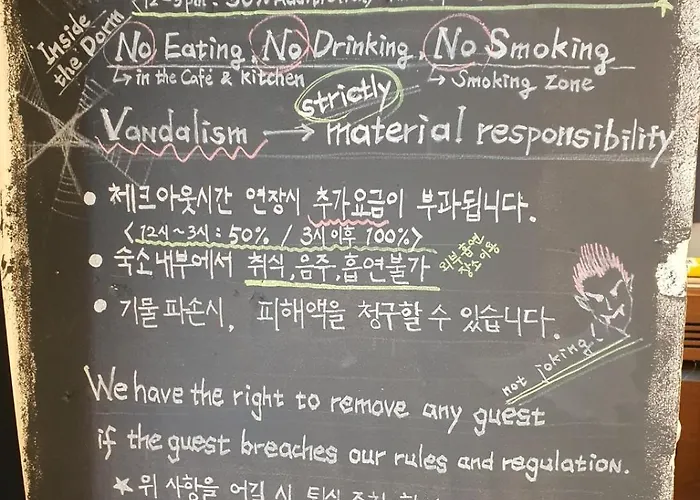 Inside
the Dorm
No Eating, No Drinking, No Smoking
↳ in the Café & Kitchen
↳ Smoking Zone
strictly
Vandalism → material responsibility
• 체크아웃시간 연장시 추가요금이 부과됩니다.
<12시~3시: 50% / 3시이후 100%>
• 숙소내부에서 취식,음주,흡연불가
외부흡연
장소이용
• 기물파손시, 피해액을 청구할 수 있습니다.
not joking!
We have the right to remove any guest
if the guest breaches our rules and regulation.
★ 위 사항을 어길 시